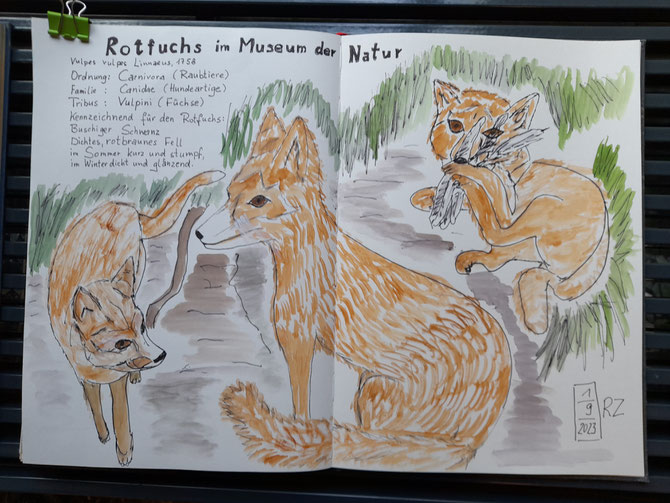 Rotfuchs im Museum der Natur
Vulpes vulpes Linnaeus, 1758
Ordnung: Carnivora (Raubtiere)
Familie : Canidae (Hundeartige)
Tribus : Vulpini (Füchse)
Kennzeichnend für den Rotfuchs:
Buschiger Schwanz
Dichtes, rotbraunes Fell
im Sommer kurz und stumpf,
im Winter dicht und glänzend.
1
9
2023
RZ